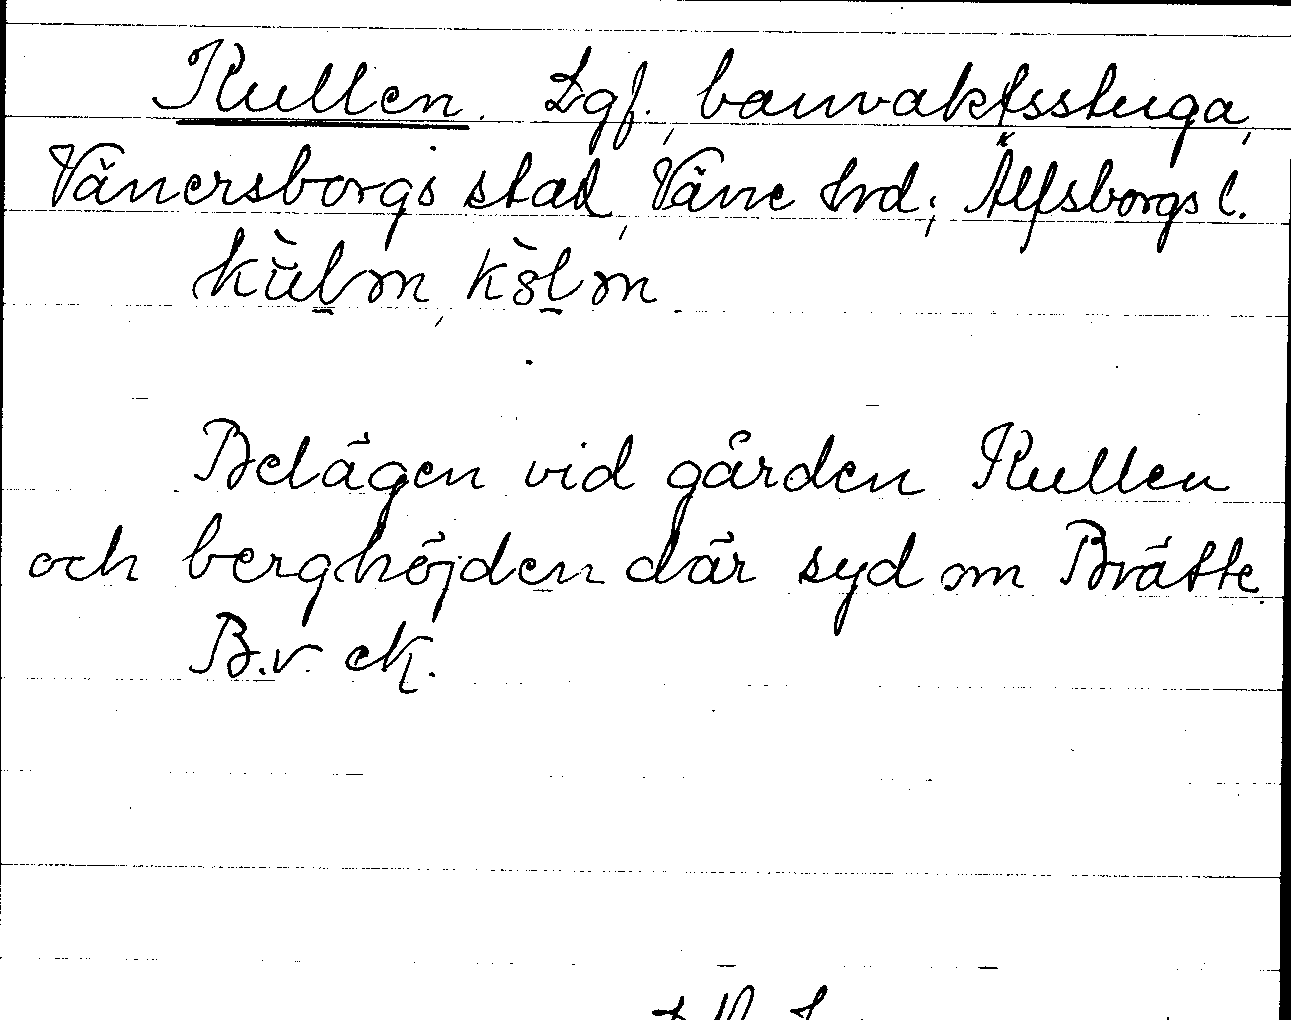 Kullen. Lgf., banvaktsstuga,
Vänersborgs stad, Väne hrd; Älfsborgs l.
Belägen vid gården Kullen
och berghöjden där syd om Brätte.
B.v. ek.